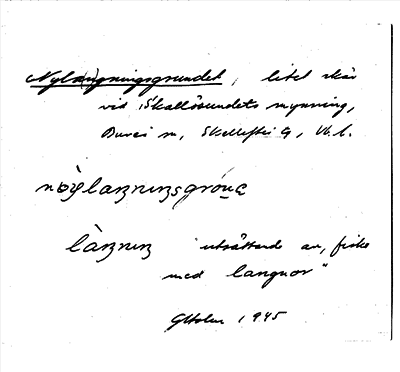 Nyla(n)gningsgrundet, litet skär
vid Skallösundets mynning,
Bureå sn, Skellefteå, Vb. l.
nøylaŋnɩŋsgrónɛ
làŋnɩŋ "utsättande av, fiske
med langnor"
GHolm 1945